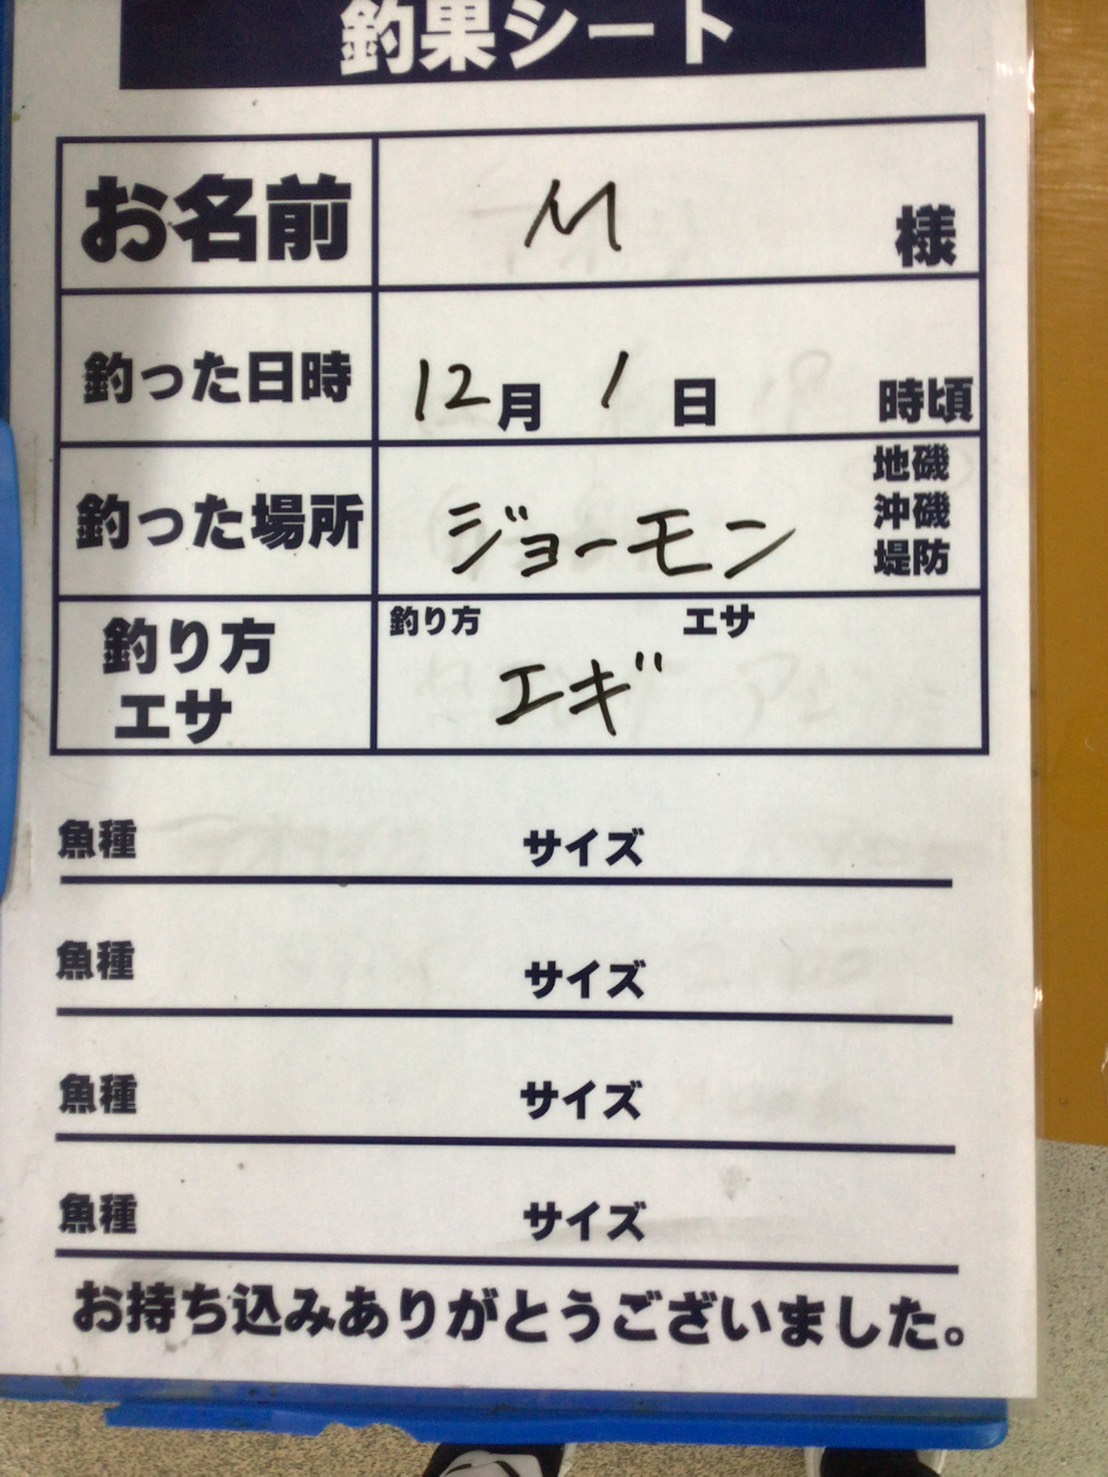 釣果シート
お名前 M 様
釣った日時 12月 1日 時頃
釣った場所 ジョーモン 地磯
沖磯
堤防
釣り方 エサ
釣り方
エサ エギ
魚種 サイズ
魚種 サイズ
魚種 サイズ
魚種 サイズ
お持ち込みありがとうございました。